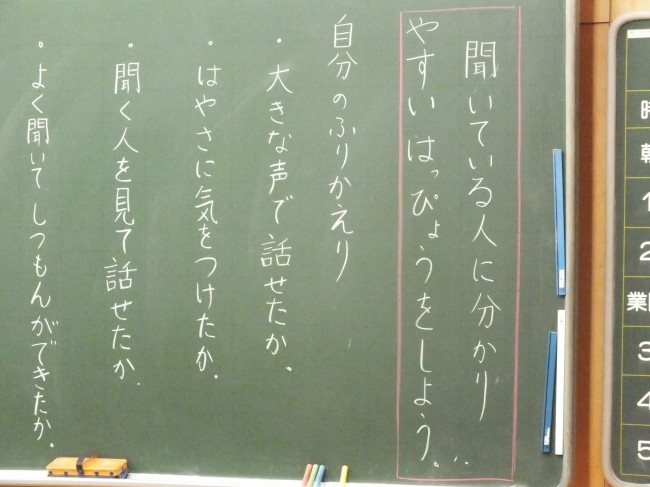 聞いている人に分かり
やすいはっぴょうをしよう。
自分のふりかえり
・大きな声で話せたか。
・はやさに気をつけたか。
・聞く人を見て話せたか.
・よく聞いてしつもんができたか。
時
朝
1
2
業間
3
4
5